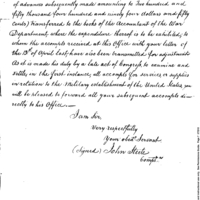 of advances subsequently made according to Two hundred and
fifty thousand four hundred and ninety four dollars and fifty
cents) transferred to the books of the Accountant of the War
Department, where the expenditure thereof is to be settled; to
whom the accounts received at this Office with your letter of
the 13th of April last, have also been transmitted for adjustment.
As it is made his duty by a late act of Congress to examine and
settle, in the first instance, all accounts for services or supplies
in relation to the Military establishment of the United States, you
will be pleased to forward all your subsequent accounts di-
rectly to his Office.
I am Sir
Very respectfully
Your obdt Servant
(Signed) John Steele
Compt